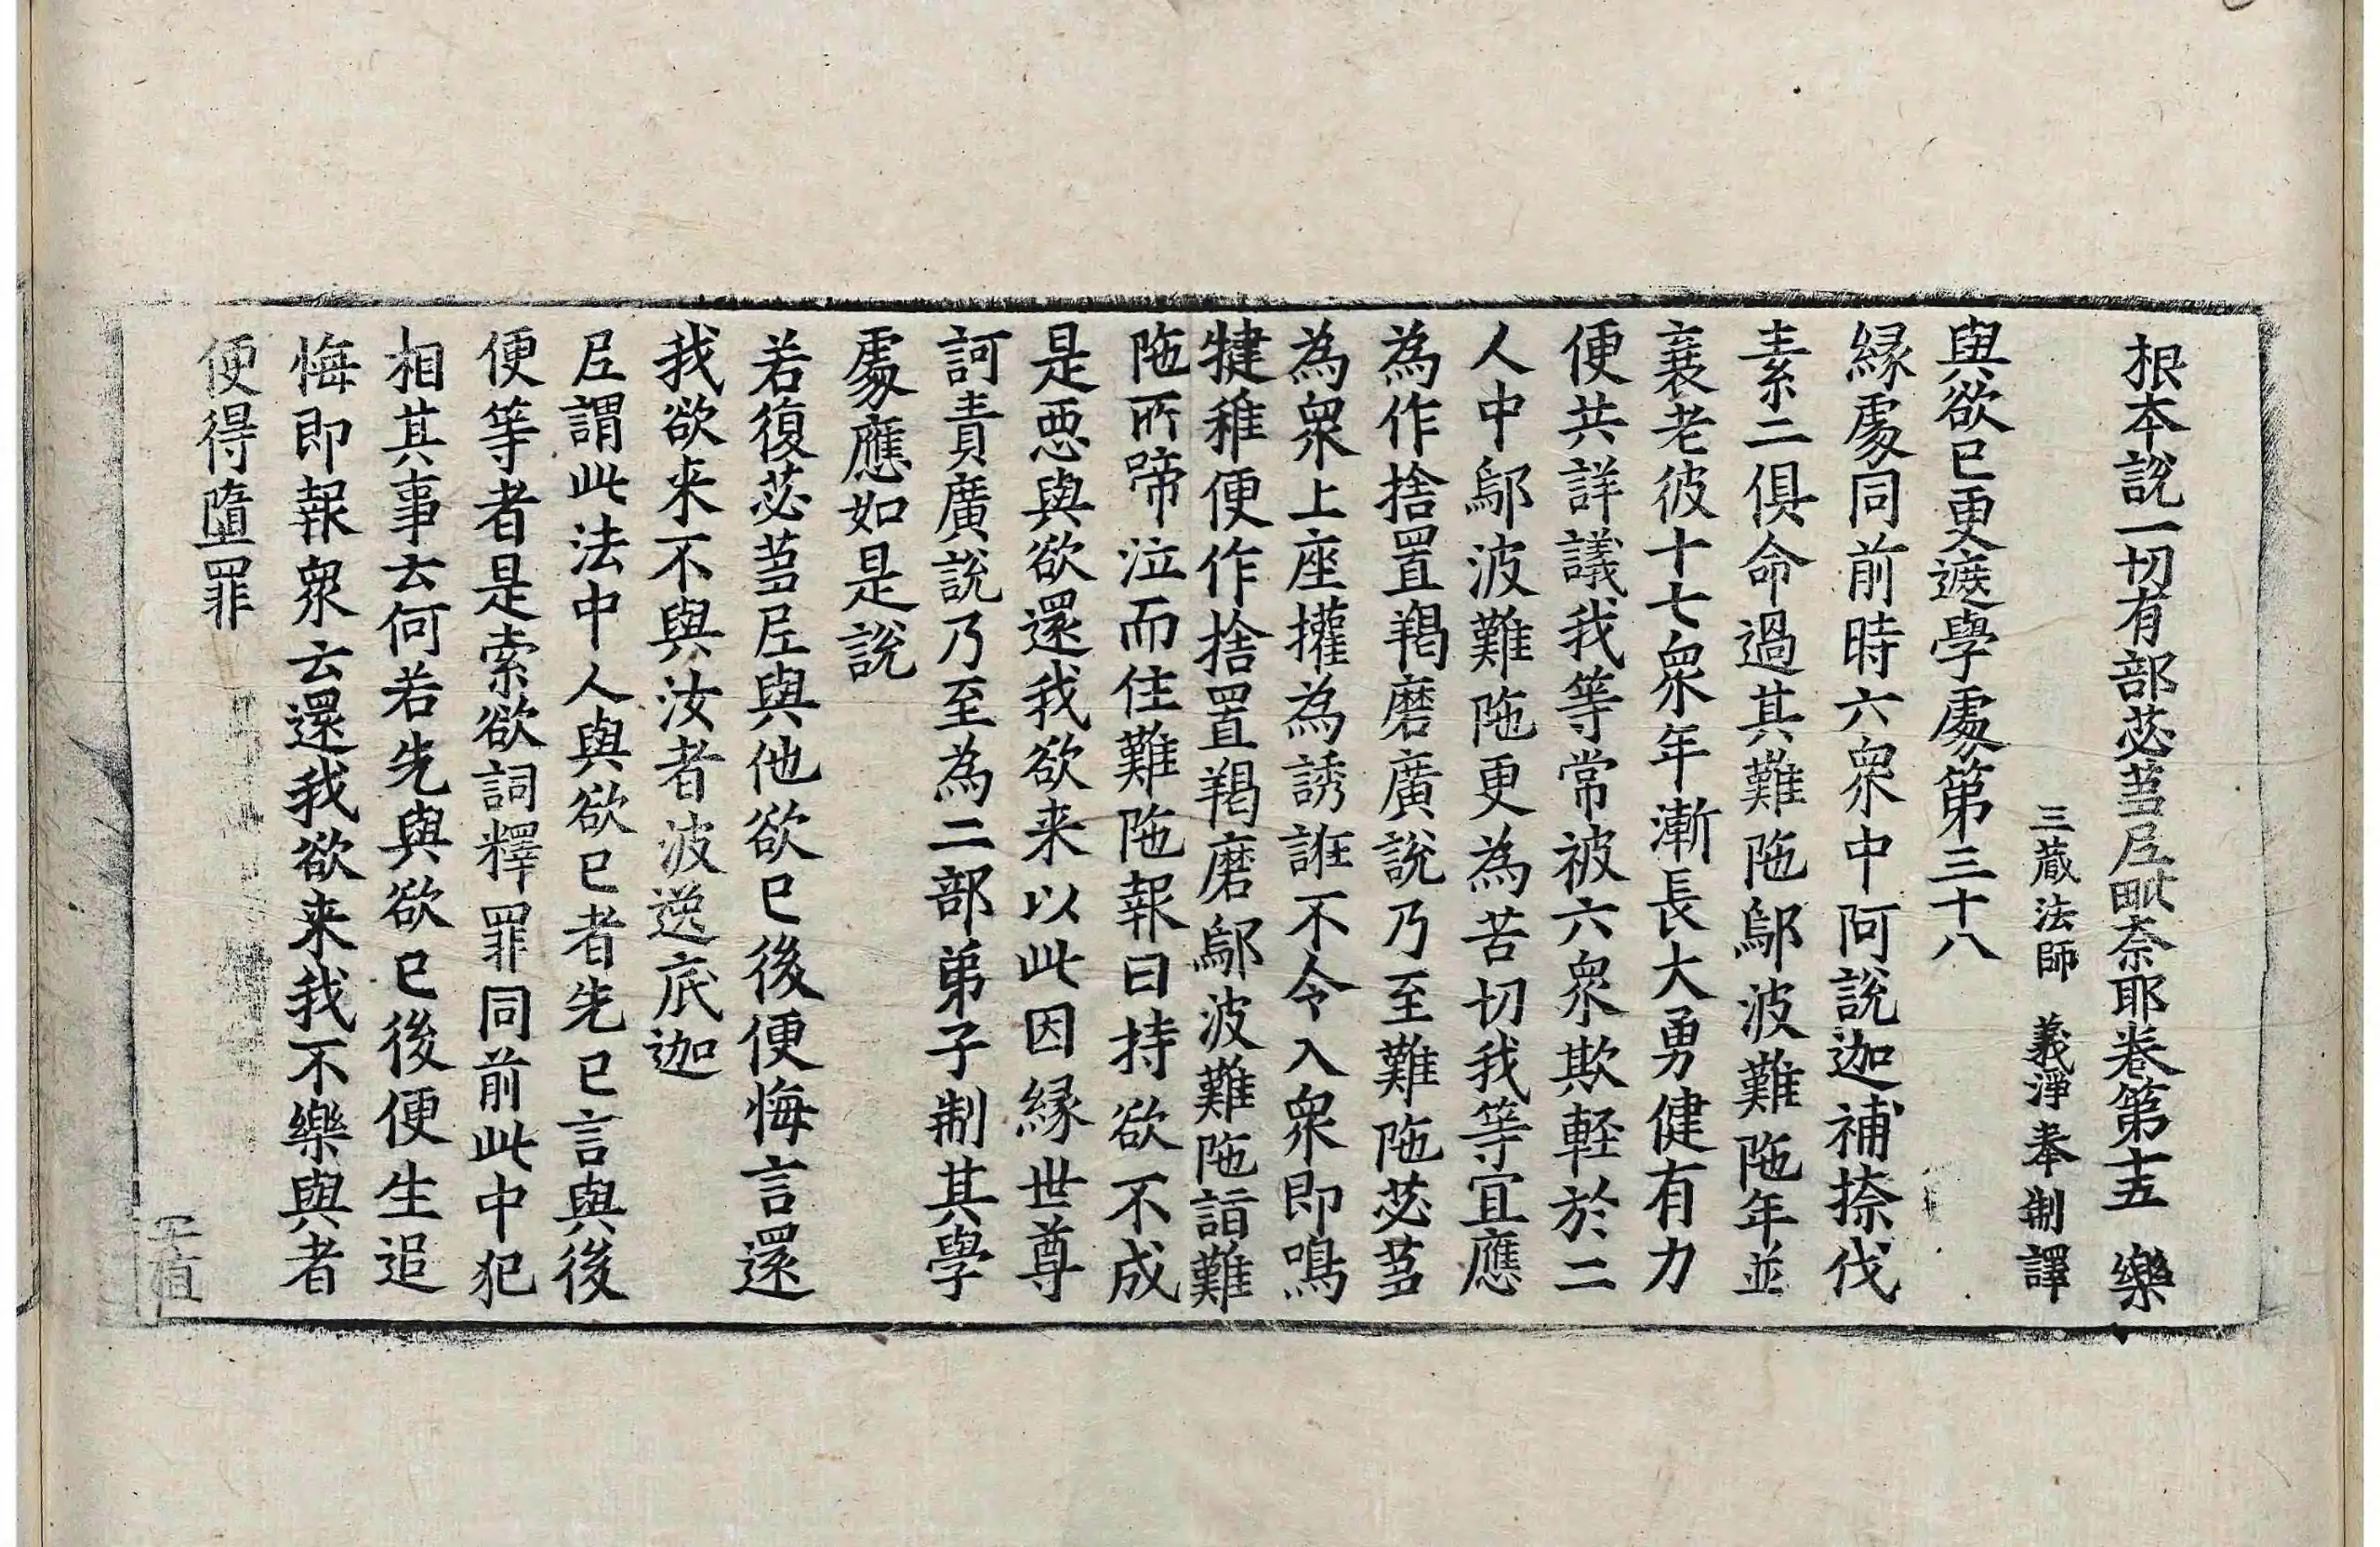 根本說一切有部苾蒭尼毗奈耶卷第十五　樂
三藏法師　義淨奉制譯
與欲已更遮學處第三十八
緣處同前時六眾中阿說迦補捺伐
素二俱命過其難陁鄔波難陁年並
衰老彼十七眾年漸長大勇健有力
便共詳議我等常被六眾欺輕於二
人中鄔波難陁更為苦切我等宜應
為作捨置羯磨廣說乃至難陁苾蒭
為眾上座攉為誘誑不令入眾即鳴
犍稚便作捨置羯磨鄔波難陁詣難
陁所啼泣而住難陁報曰持欲不成
是惡與欲還我欲来以此因緣世尊
訶責廣說乃至為二部弟子制其學
處應如是說
若復苾蒭尼與他欲已後便悔言還
我欲来不與汝者波逸底迦
尼謂此法中人與欲已者先已言與後
便等者是索欲詞釋罪同前此中犯
相其事云何若先與欲已後便生追
悔即報眾云還我欲来我不樂與者
便得墮罪